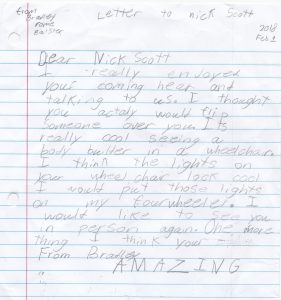 From
Bradley
Letter to nick Scott
2018
Feb 1
Dear Nick Scott
I really enjoyed
your coming hear and
talking to us. I thought
you actaly would flip
someone over you. Its
really cool seeing a
body builter in a wheelchair.
I think the lights on
your wheel chair lock cool
I would put those lights
on my fourwheeler. I
would like to see you
in person again. One more
thing I think your
From Bradley
AMAZING